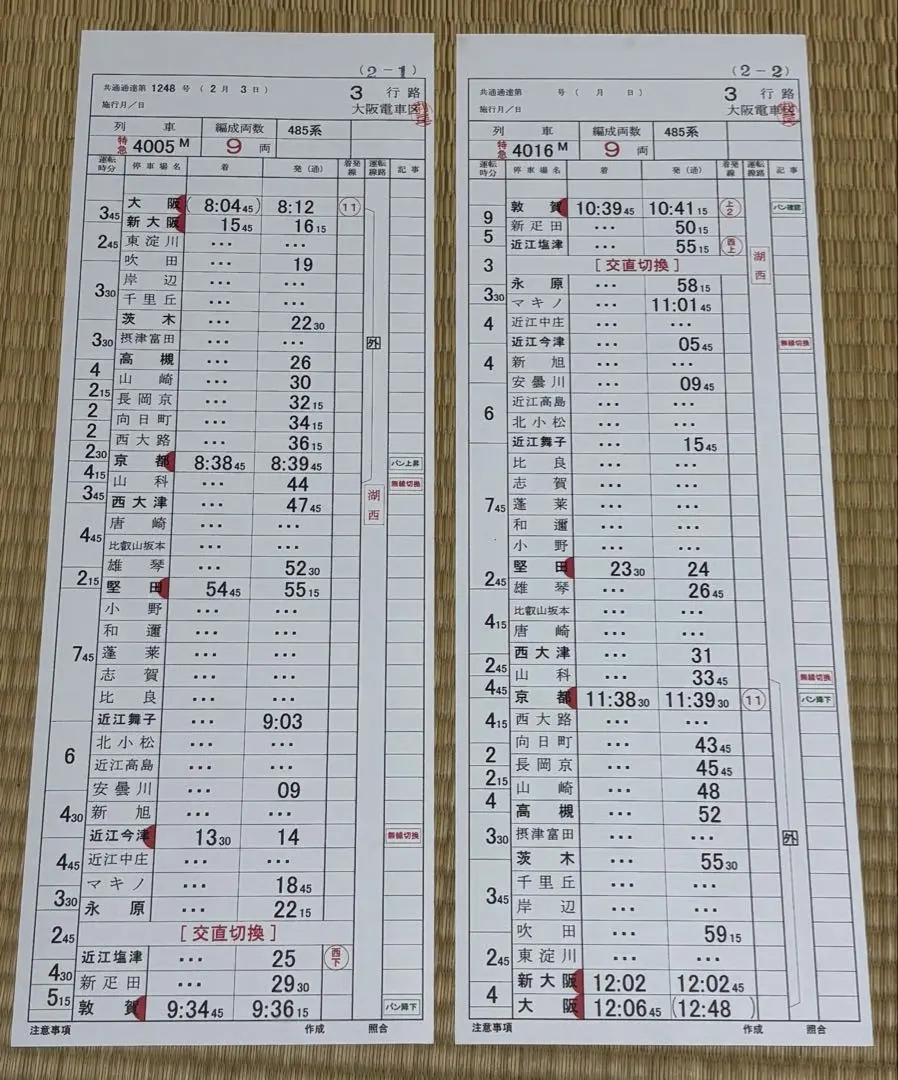 (2-1)
共通通達第 1248 号 ( 2 月 3 日 ) 3 行路
施行月／日 大阪電車区
列 車 編成両数 485系
特急 4005M 9 両
運転時分 停車場名 着 発(通) 着発線 運転線路 記事
大阪 (8:04 45) 8:12 11
3 45
新大阪 15 45 16 15
2 45
東淀川 ... ...
吹田 ... 19
岸辺 ... ...
3 30
千里丘 ... ...
茨木 ... 22 30
3 30 外
摂津富田 ... ...
高槻 ... 26
4
山崎 ... 30
2 15
長岡京 ... 32 15
2
向日町 ... 34 15
2
西大路 ... 36 15
2 30
京都 8:38 45 8:39 45 パン上昇
4 15
山科 ... 44 無線切換
3 45 湖西
西大津 ... 47 45
唐崎 ... ...
4 45
比叡山坂本 ... ...
雄琴 ... 52 30
2 15
堅田 54 45 55 15
小野 ... ...
和邇 ... ...
7 45
蓬莱 ... ...
志賀 ... ...
比良 ... ...
近江舞子 ... 9:03
北小松 ... ...
6
近江高島 ... ...
安曇川 ... 09
4 30
新旭 ... ...
近江今津 13 30 14 無線切換
4 45
近江中庄 ... ...
マキノ ... 18 45
3 30
永原 ... 22 15
2 45 [交直切換]
近江塩津 ... 25 西下
4 30
新疋田 ... 29 30
5 15
敦賀 9:34 45 9:36 15 パン降下
注意事項 作成 照合
(2-2)
共通通達第 号 ( 月 日 ) 3 行路
施行月／日 大阪電車区
列 車 編成両数 485系
特急 4016M 9 両
運転時分 停車場名 着 発(通) 着発線 運転線路 記事
敦賀 10:39 45 10:41 15 上2 パン確認
9
新疋田 ... 50 15
5
近江塩津 ... 55 15 西上
3 [交直切換] 湖西
永原 ... 58 15
3 30
マキノ ... 11:01 45
4
近江中庄 ... ...
近江今津 ... 05 45 無線切換
4
新旭 ... ...
安曇川 ... 09 45
近江高島 ... ...
6
北小松 ... ...
近江舞子 ... 15 45
比良 ... ...
志賀 ... ...
7 45
蓬莱 ... ...
和邇 ... ...
小野 ... ...
堅田 23 30 24
2 45
雄琴 ... 26 45
比叡山坂本 ... ...
4 15
唐崎 ... ...
西大津 ... 31
2 45
山科 ... 33 45 無線切換
4 45
京都 11:38 30 11:39 30 11 パン降下
4 15
西大路 ... ...
向日町 ... 43 45
2
長岡京 ... 45 45
2 15
山崎 ... 48
4
高槻 ... 52
3 30 外
摂津富田 ... ...
茨木 ... 55 30
千里丘 ... ...
3 45
岸辺 ... ...
吹田 ... 59 15
2 45
東淀川 ... ...
新大阪 12:02 12:02 45
4
大阪 12:06 45 (12:48 )
注意事項 作成 照合